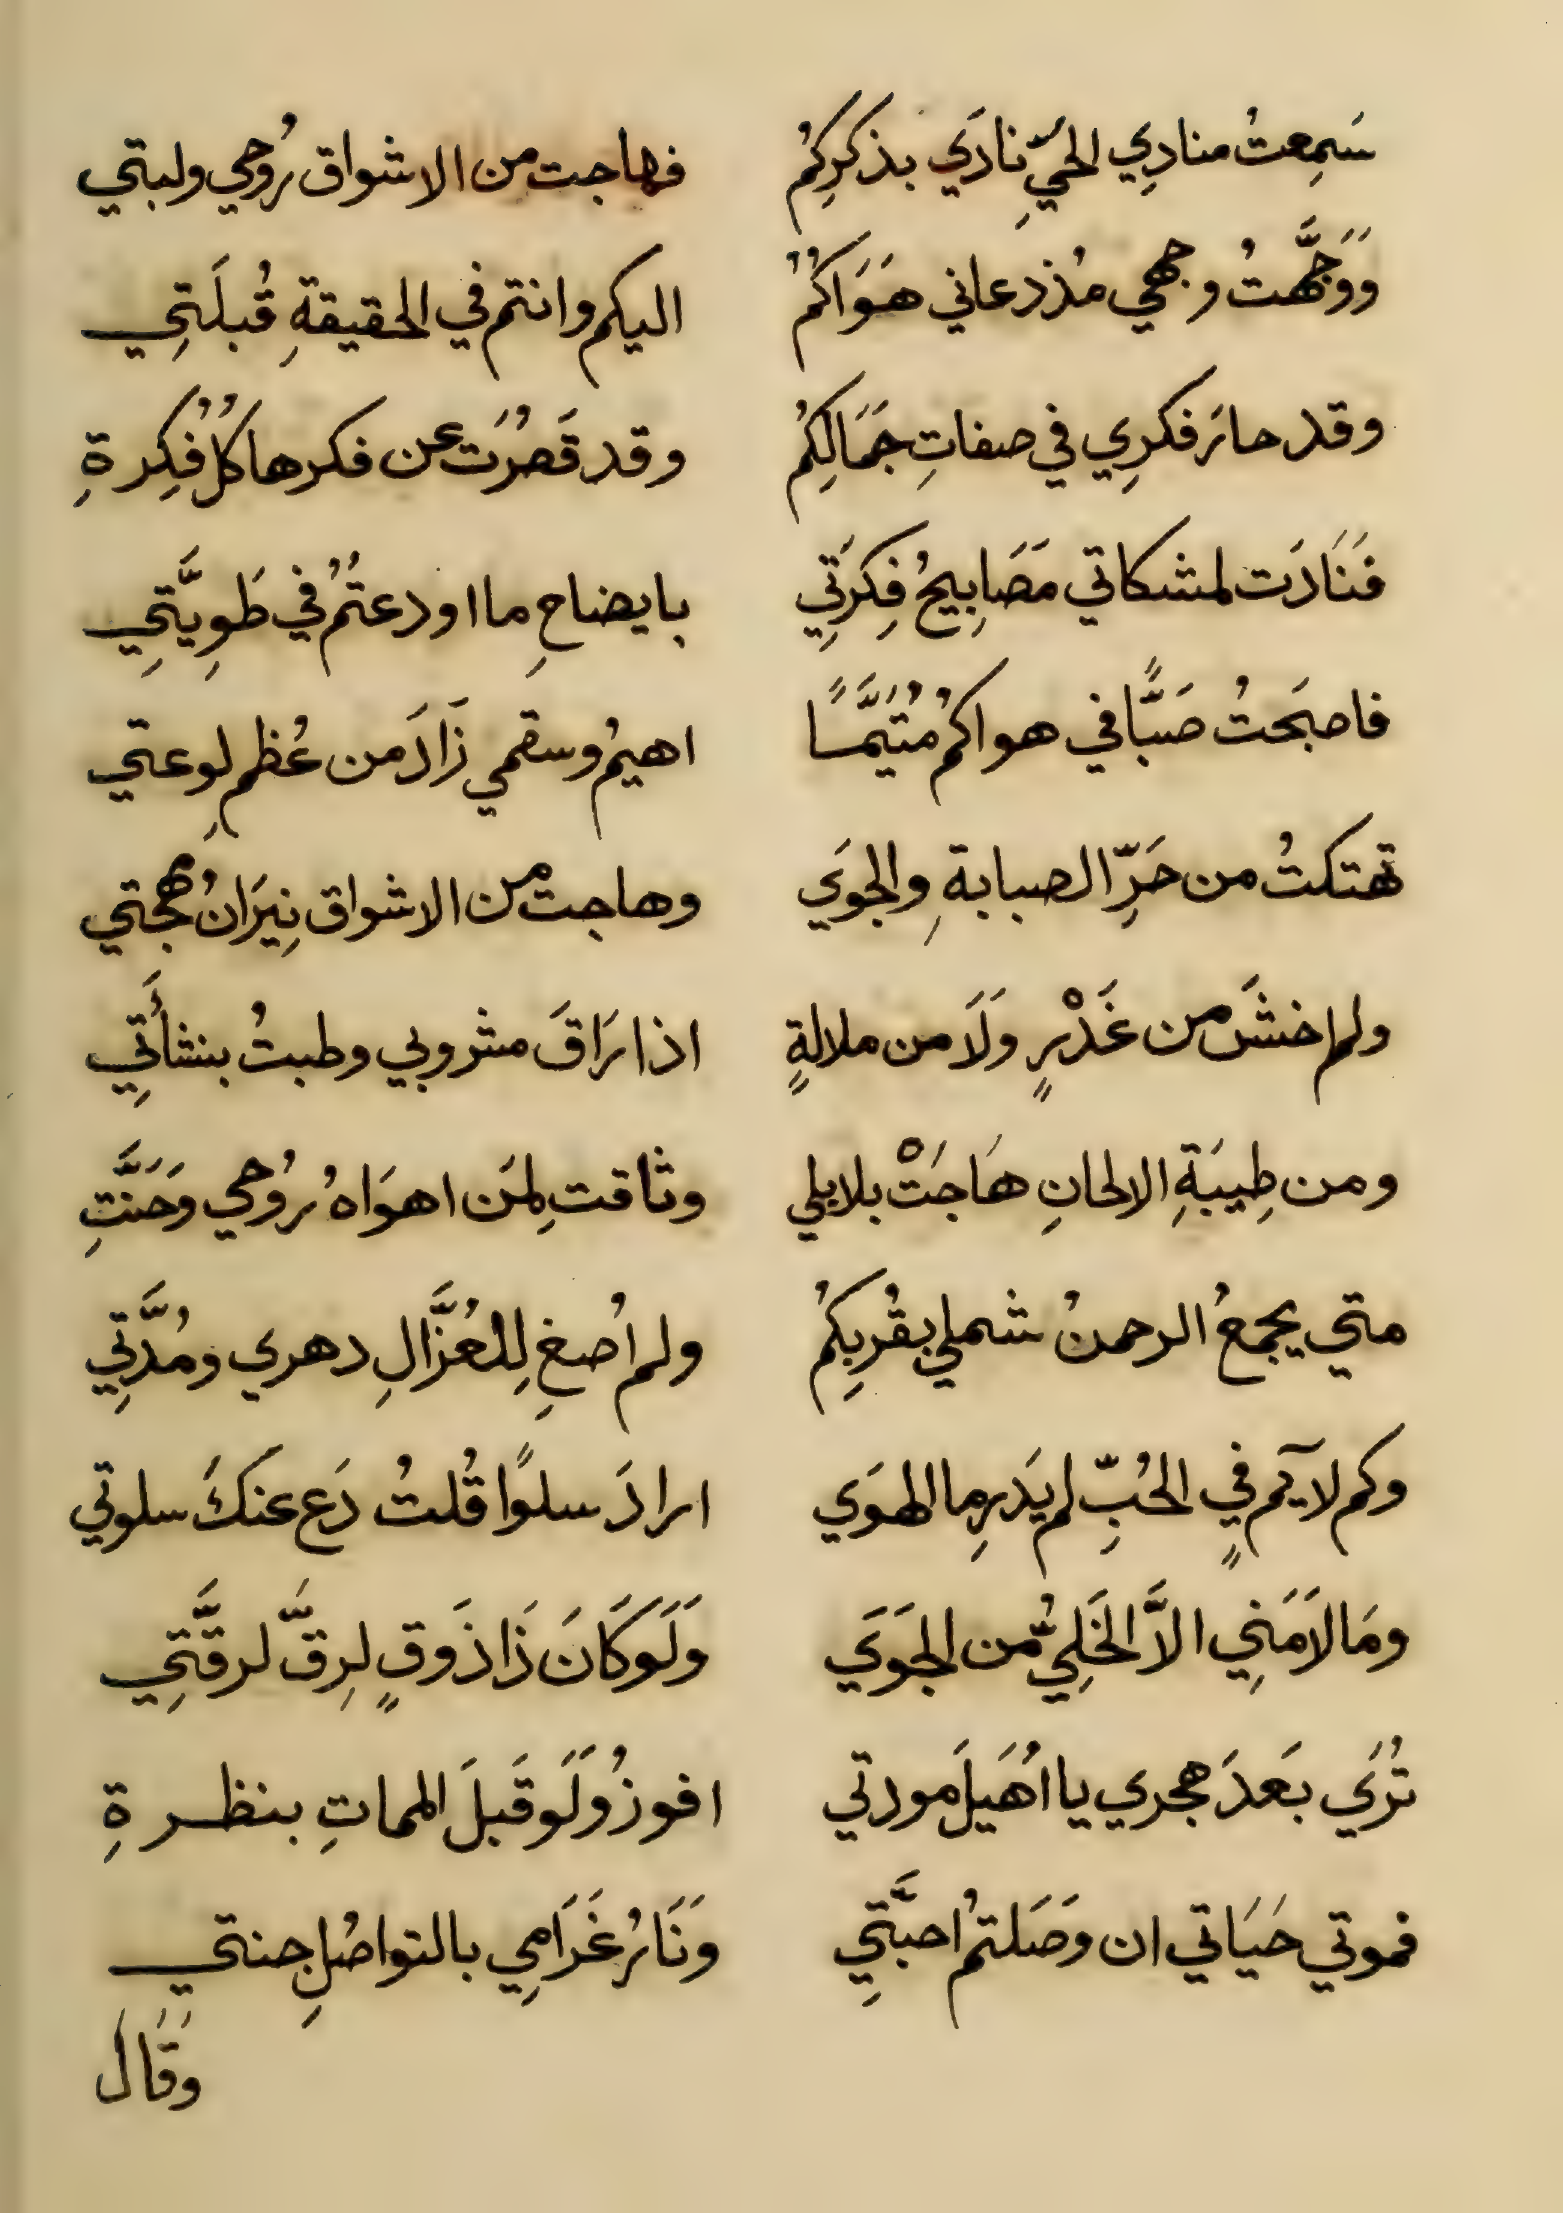 سَمِعتُ منادِي الحيِّ نادَي بذكرِكُم فهاجت من الاشواق رُوحي ولبتي
وَوَجَّهتُ وجهي مُذ دعاني هَوَاكُمُ اليكم وانتم في الحقيقةِ قُبلَتِي
وقد حارَ فكرِي في صفاتِ جَمَالِكُم وقد قَصُرَت عن فكرها كلُّ فُكِرةِ
فَنَادَت لمشكاتي مَصَابِيحُ فِكرَتِي بايضاحِ ما اودعتُمُ في طَوِيَّتِي
فاصبَحتُ صَبًّا في هواكُمُ مُتَيَّمًا اهيمُ وسقمي زَادَ من عُظمِ لوعتي
تهتكتُ من حَرِّ الصبابةِ والجوَي وهاجت من الاشواق نِيرَانُ مُهجتي
ولم اخشَ من غَدْرٍ وَلَا من ملالةٍ اذا رَاقَ مشروبي وطبتُ بنشأَتِي
ومن طِيبَةِ الالحانِ هَاجَتْ بلابلي وتاقت لِمَن اهوَاهُ رُوحي وَحَنَّتِ
متي يجمعُ الرحمنُ شملي بقُربِكُم ولم اُصغِ لِلعُزَّالِ دهري ومُدَّتِي
وكم لآيمٍ في الحُبِّ لم يَدرِ ما الهوَي ارادَ سلوًا قُلتُ دَع عنكَ سلوتي
ومَا لاَمَنِي الاَّ الخَلِيُّ من الجَوَي وَلَو كَانَ ذَا ذَوقٍ لِرِقَّ لرقَّتِي
تُرَي بَعدَ هجري يا اُهَيلَ مودتي افوزُ وَلَو قَبلَ المماتِ بنظرةِ
فموتي حَيَاتي ان وَصَلتُم احبَّتِي وَنَارُ غَرَامِي بالتواصُلِ جنتي
وَقَالَ